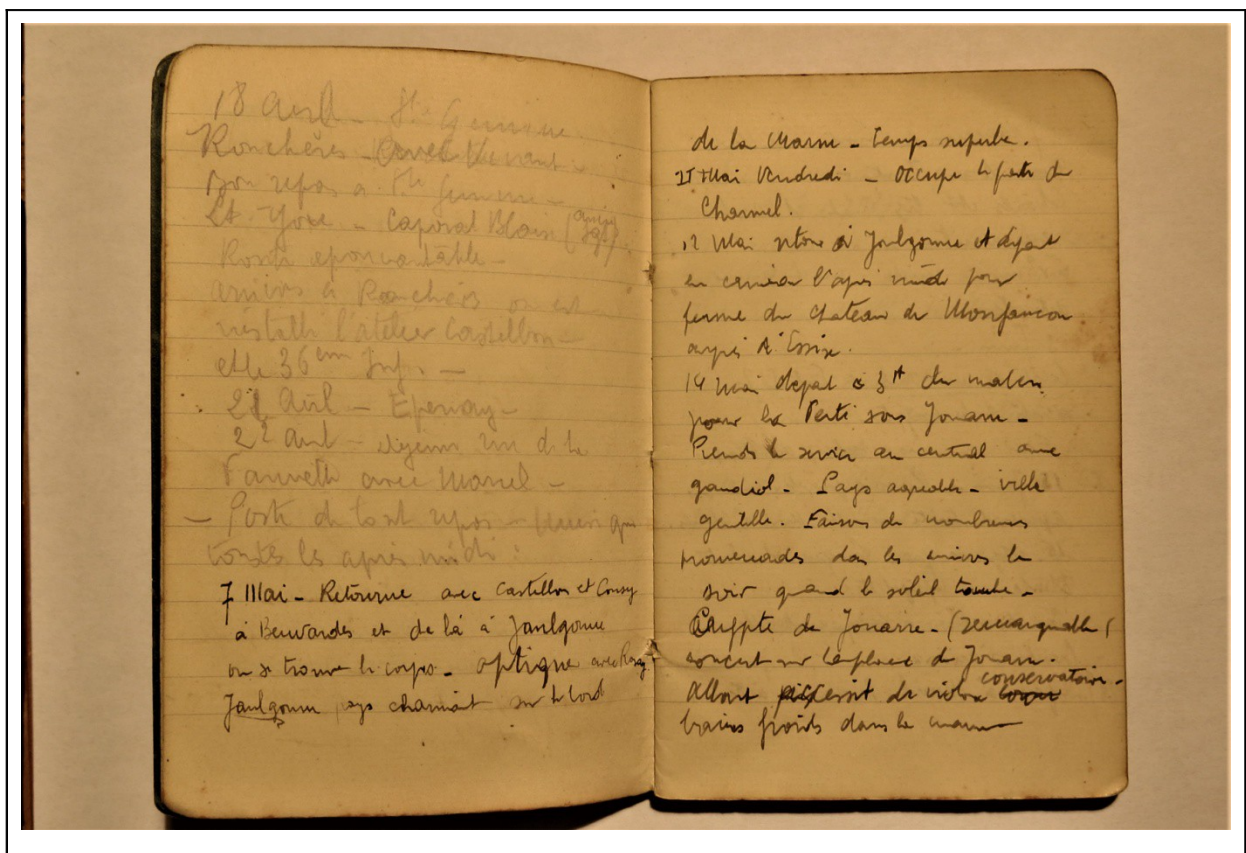 18 Avril - Ste Gemme
Ronchères -
Bon repos a Ste Gemme -
Lt. Yore - Caporal Blain (
épouvantable -
arrivés à Ronchères où est
installé l'atelier Castellon -
et le 36em Inf. -
21 Avril - Epernay -
22 avril - de la
avec Marcel -
- Poste de tout repos -
toutes les après midi :
7 Mai - Retourne avec Castellon et Cousy
à Beuvardes et de là à Jaulgonne
où se trouve le corps - optique avec
Jaulgonne pays charmant sur le bord
de la Marne - temps superbe.
Mai Vendredi - Occupe le poste du
Charmel.
12 Mai retour à Jaulgonne et départ
en camion l'après midi pour
ferme du chateau de Monfaucon
après d'Essise.
14 Mai départ à 3H du matin
pour la Ferté sous Jouarre -
Prends le service au central avec
gandiol - Pays agréable - ville
gentille. Faisons de nombreuses
promenades dans les environs le
soir quand le soleil tombe -
Crypte de Jouarre - (remarquable)
concert sur la place de Jouarre.
Albert de violon conservatoire -
bains froids dans la marne